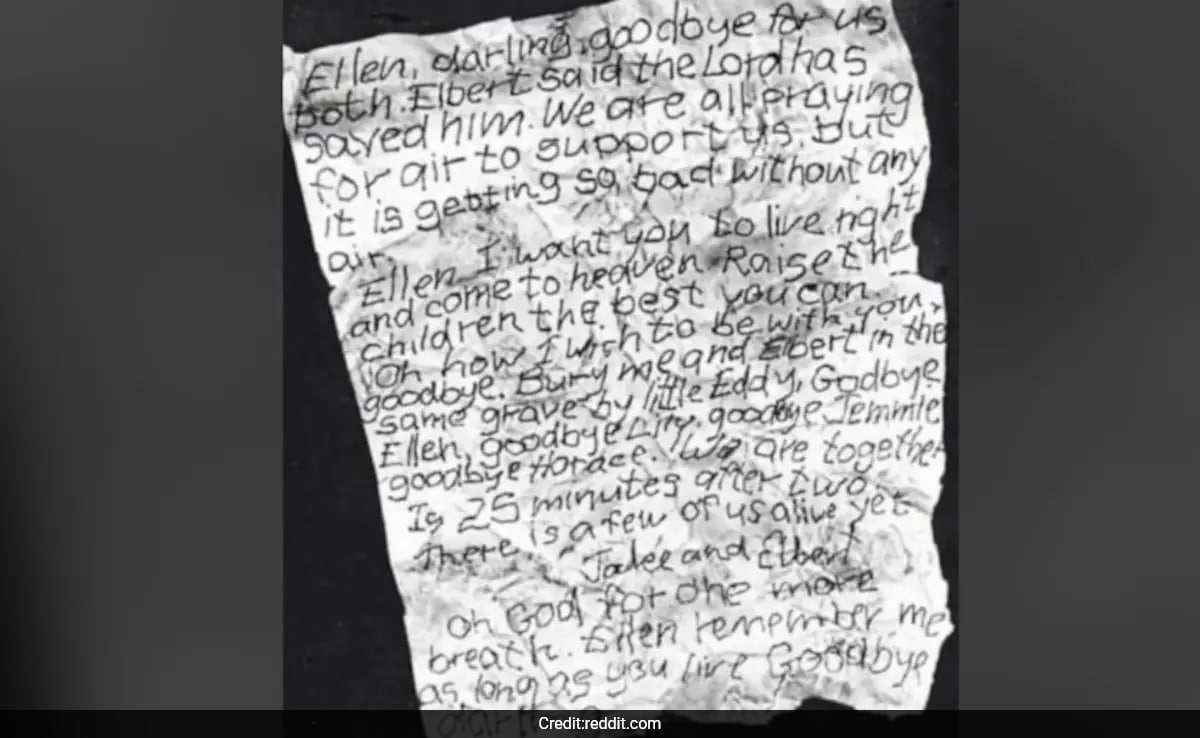 Ellen, darling, goodbye for us
both. Elbert said the Lord has
saved him. We are all praying
for air to support us, but
it is getting so bad without any
air.
Ellen I want you to live right
and come to heaven. Raise the
children the best you can.
Oh how I wish to be with you,
goodbye. Bury me and Elbert in the
same grave by little Eddy, Godbye
Ellen, goodbye Lily, goodbye Jemmie
goodbye Horace. We are together
Is 25 minutes after two.
There is a few of us alive yet
Jake and Elbert
Oh God for one more
breath. Ellen remember me
as long as you live Goodbye
darling
Credit:reddit.com